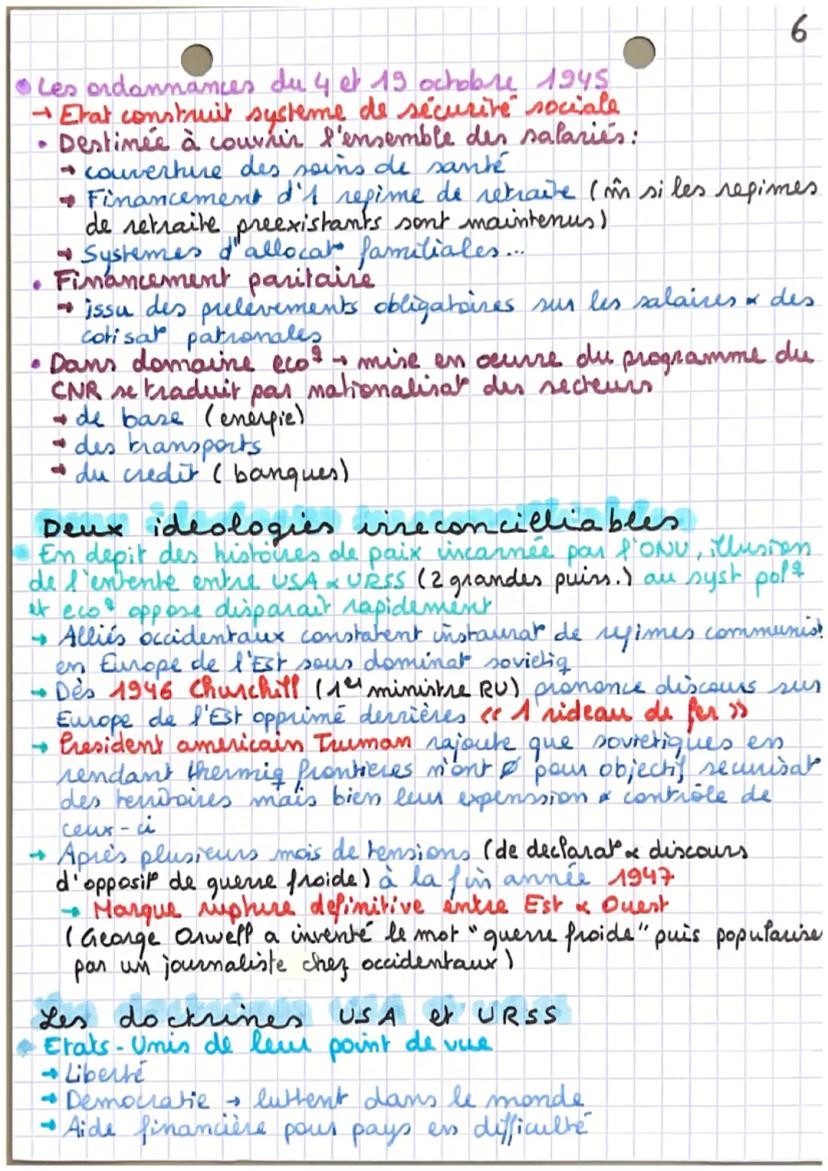 6
• Les ordannances du 4 et 19 octobre 1945
→ Etat construit systeme de sécurité sociale
• Destinée à couvrir l'ensemble des salariés :
→ couverture des soins de santé
→ Financement d'1 regime de retraite (m̂ si les regimes
de retraite preexistants sont maintenus)
→ Systemes d'allocat° familiales...
• Financement paritaire
→ issu des prelevements obligatoires sur les salaires & des
cotisat° patronales
• Dans domaine eco^q → mise en oeuvre du programme du
CNR se traduit par nationalisat° des secteurs
→ de base (energie)
→ des transports
→ du credit (banques)
Deux idéologies irreconcilliables
• En depit des histoires de paix incarnée par l'ONU, illusion
de l'entente entre USA & URSS (2 grandes puiss.) au syst pol^q
et eco^q oppose disparait rapidement
→ Alliés occidentaux constatent instaurat° de regimes communist
en Europe de l'Est sous dominat° sovietiq
→ Dès 1946 Churchill (1er ministre RU) prononce discours sur
Europe de l'Est opprimé derrières « 1 rideau de fer »
→ President americain Truman rajoute que sovietiques en
rendant thermiq frontieres n'ont ø pour objectif securisat°
des territoires mais bien leur expenssion & contrôle de
ceux-ci
→ Après plusieurs mois de tensions (de declarat° & discours
d'opposit° de guerre froide) à la fin année 1947
→ Marque rupture definitive entre Est & Ouest
(George Orwell a inventé le mot "guerre froide" puis popularise
par un journaliste chez occidentaux)
Les doctrines USA et URSS
• Etats-Unis de leur point de vue
→ Liberté
→ Democratie → luttent dans le monde
→ Aide financière pour pays en difficulté